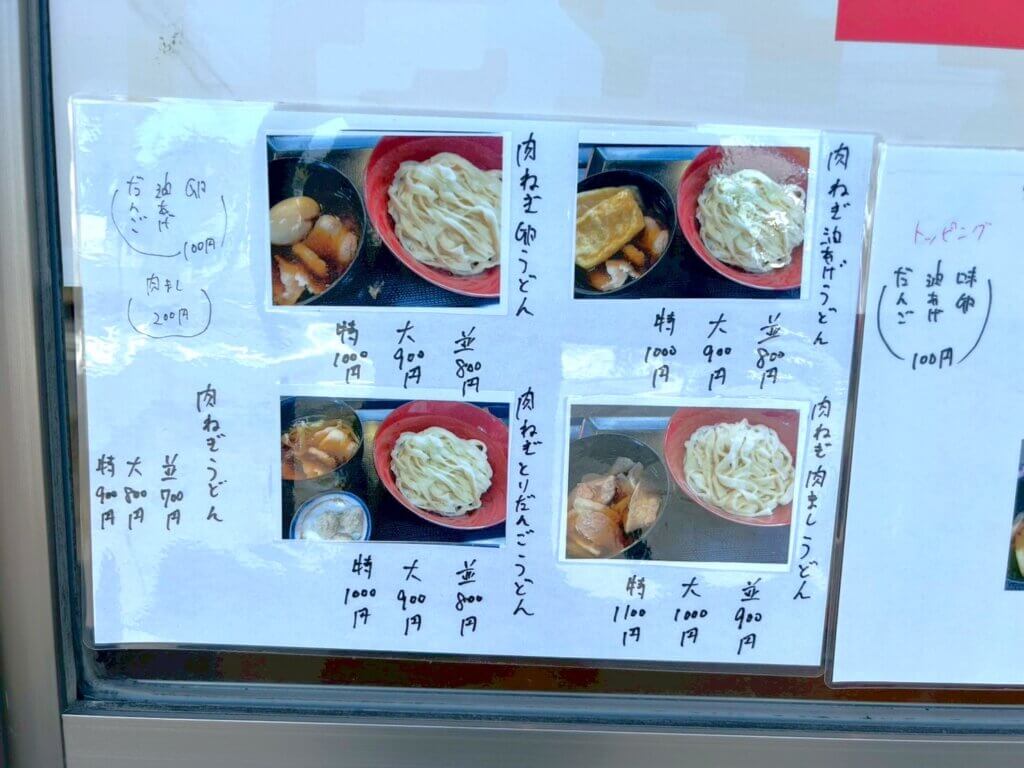 肉ねぎ油あげうどん
並 800円
大 900円
特 1000円
肉ねぎ卵うどん
並 800円
大 900円
特 1000円
卵
油あげ
だんご
100円
肉まし
200円
肉ねぎ肉ましうどん
並 900円
大 1000円
特 1100円
肉ねぎとりだんごうどん
並 800円
大 900円
特 1000円
肉ねぎうどん
並 700円
大 800円
特 900円
トッピング
味卵
油あげ
だんご
100円